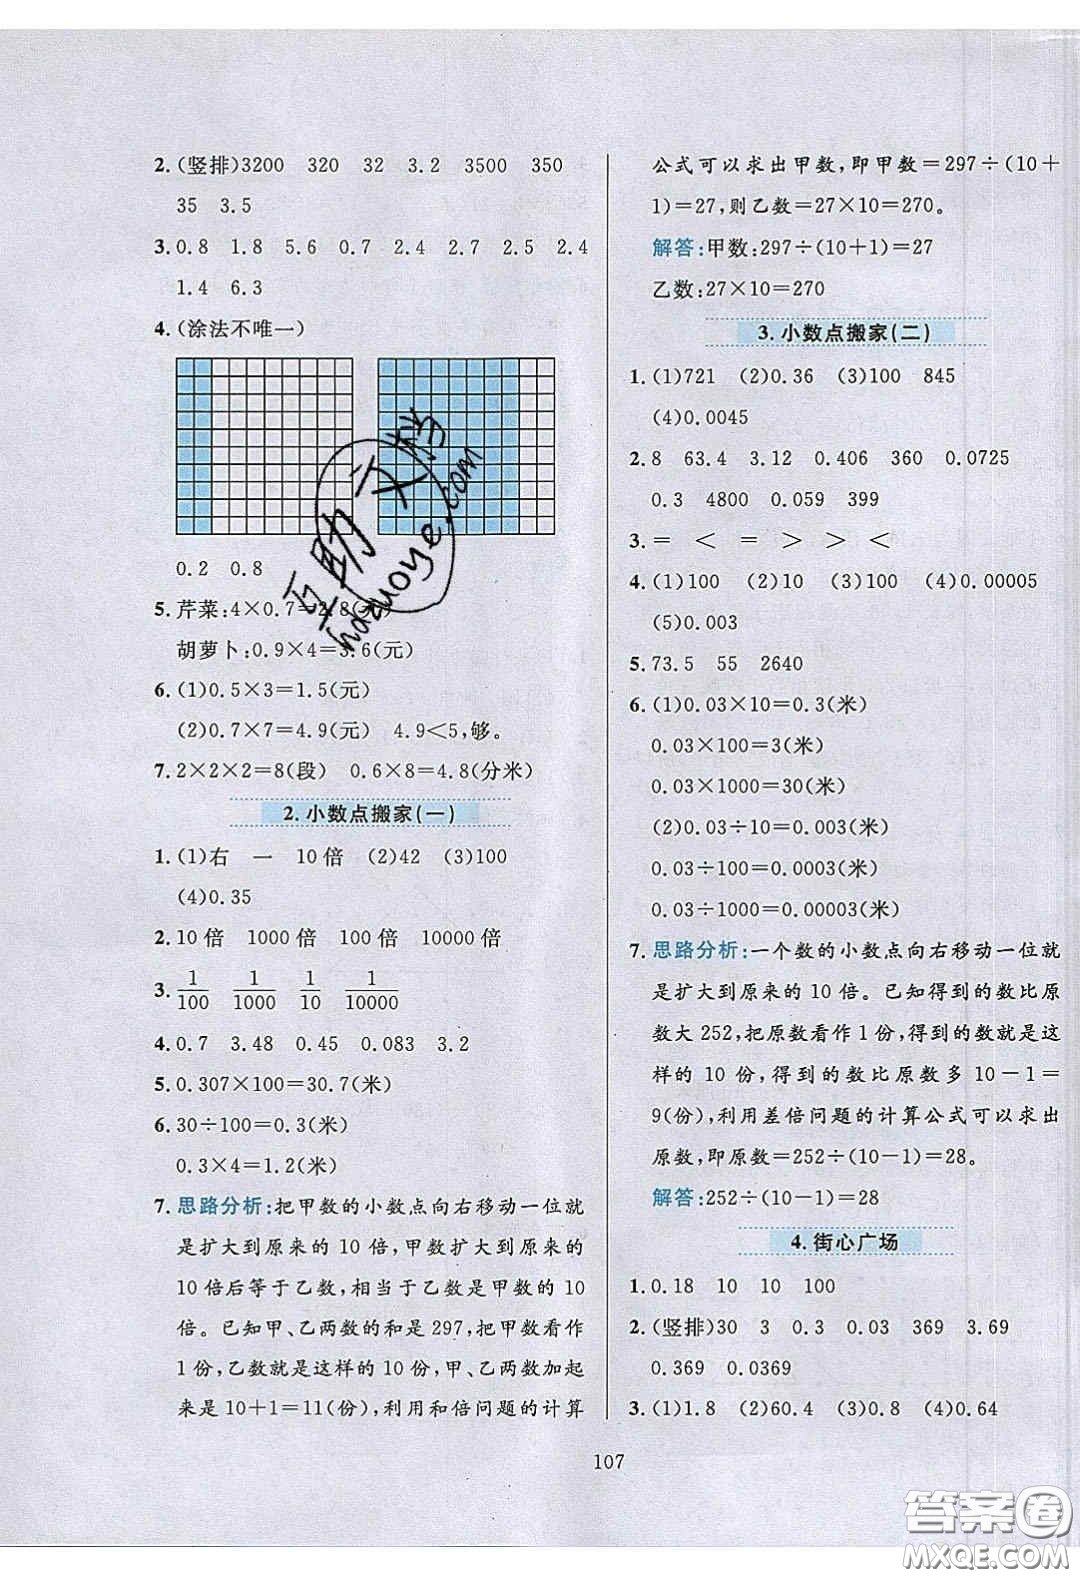 2. (竖排)3200 320 32 3.2 3500 350
35 3.5
3. 0.8 1.8 5.6 0.7 2.4 2.7 2.5 2.4
1.4 6.3
4. (涂法不唯一)
0.2 0.8
5. 芹菜:4×0.7=2.8(元)
胡萝卜:0.9×4=3.6(元)
6. (1)0.5×3=1.5(元)
(2)0.7×7=4.9(元) 4.9<5,够。
7. 2×2×2=8(段) 0.6×8=4.8(分米)
2. 小数点搬家(一)
1. (1)右 一 10倍 (2)42 (3)100
(4)0.35
2. 10倍 1000倍 100倍 10000倍
3. 1/100 1/1000 1/10 1/10000
4. 0.7 3.48 0.45 0.083 3.2
5. 0.307×100=30.7(米)
6. 30÷100=0.3(米)
0.3×4=1.2(米)
7. 思路分析:把甲数的小数点向右移动一位就
是扩大到原来的 10 倍,甲数扩大到原来的
10 倍后等于乙数,相当于乙数是甲数的 10
倍。已知甲、乙两数的和是 297,把甲数看作
1份,乙数就是这样的10份,甲、乙两数加起
来是10+1=11(份),利用和倍问题的计算
公式可以求出甲数,即甲数=297÷(10+
1)=27,则乙数=27×10=270。
解答:甲数:297÷(10+1)=27
乙数:27×10=270
3. 小数点搬家(二)
1. (1)721 (2)0.36 (3)100 845
(4)0.0045
2. 8 63.4 3.12 0.406 360 0.0725
0.3 4800 0.059 399
3. = < = > > <
4. (1)100 (2)10 (3)100 (4)0.00005
(5)0.003
5. 73.5 55 2640
6. (1)0.03×10=0.3(米)
0.03×100=3(米)
0.03×1000=30(米)
(2)0.03÷10=0.003(米)
0.03÷100=0.0003(米)
0.03÷1000=0.00003(米)
7. 思路分析:一个数的小数点向右移动一位就
是扩大到原来的 10 倍。已知得到的数比原
数大 252,把原数看作 1 份,得到的数就是这
样的 10 份,得到的数比原数多 10-1=
9(份),利用差倍问题的计算公式可以求出
原数,即原数=252÷(10-1)=28。
解答:252÷(10-1)=28
4. 街心广场
1. 0.18 10 10 100
2. (竖排)30 3 0.3 0.03 369 3.69
0.369 0.0369
3. (1)1.8 (2)60.4 (3)0.8 (4)0.64
107
互助文档
huzuoye.com
答案圈
MXQE.COM